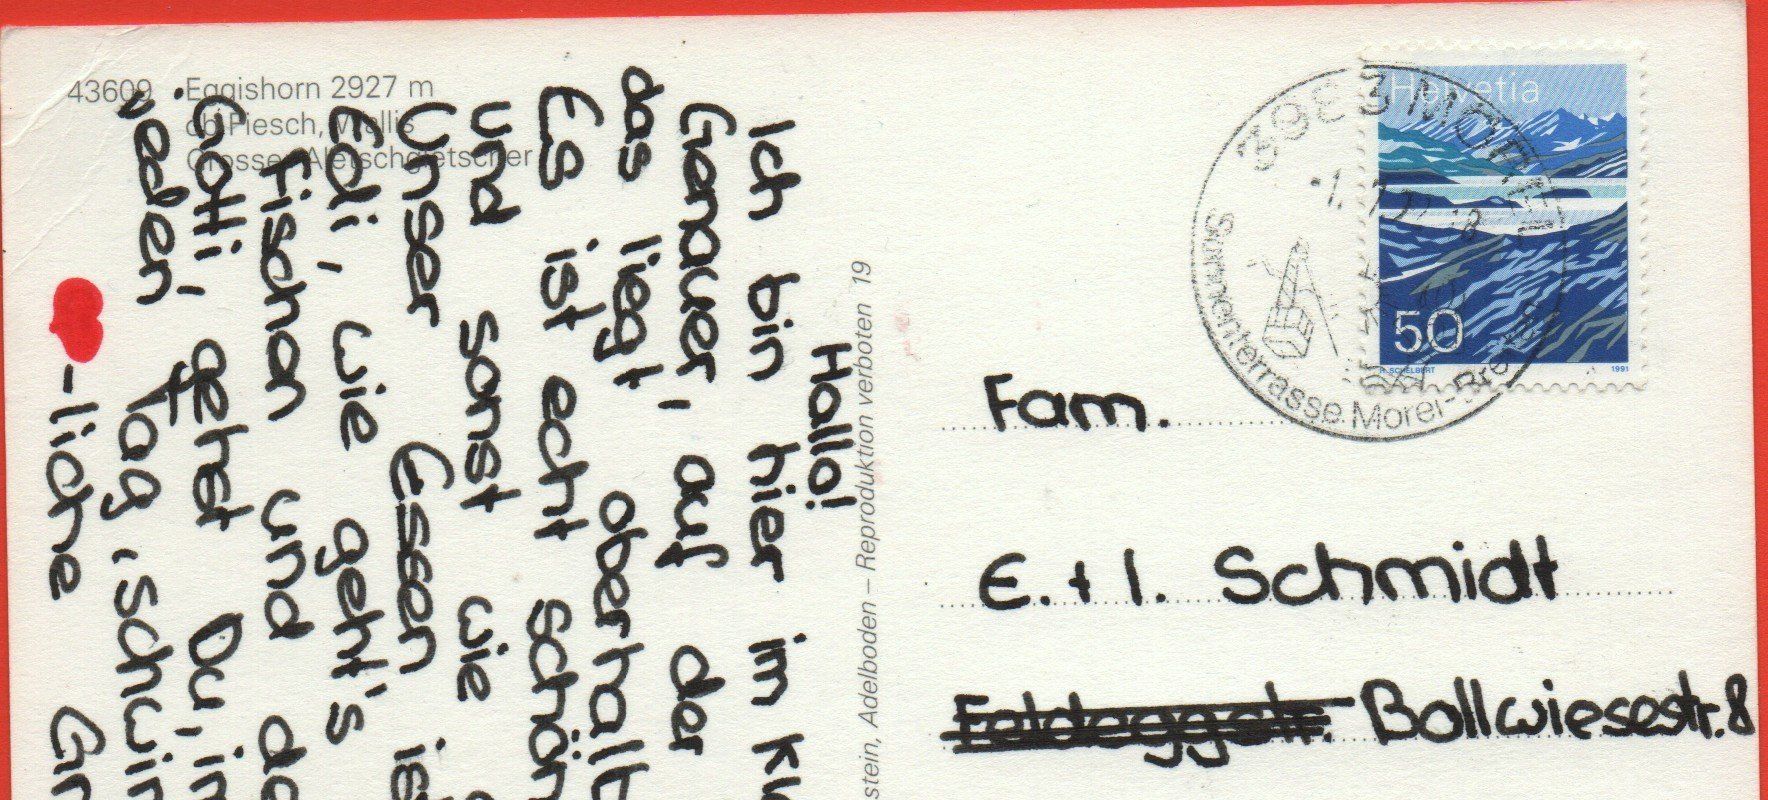 43609 Eggishorn 2927 m
ob Fiesch, Wallis
Grosser Aletschgletscher
Hallo!
Ich bin hier im
Genauer, auf der
das liegt oberhalb
Es ist echt schön
und sonst wie
Unser Essen
Edi, wie geht's
Fischen und
Gotti, gehst Du, in
jeden Tag, schwim
-liche
stein, Adelboden – Reproduktion verboten 19
Helvetia
50
R. SCHELBERT 1991
3983 MÖREL
Sonnenterrasse Mörel-Breiten
Fam.
E. + I. Schmidt
Feldeggstr. Bollwiesestr. 8